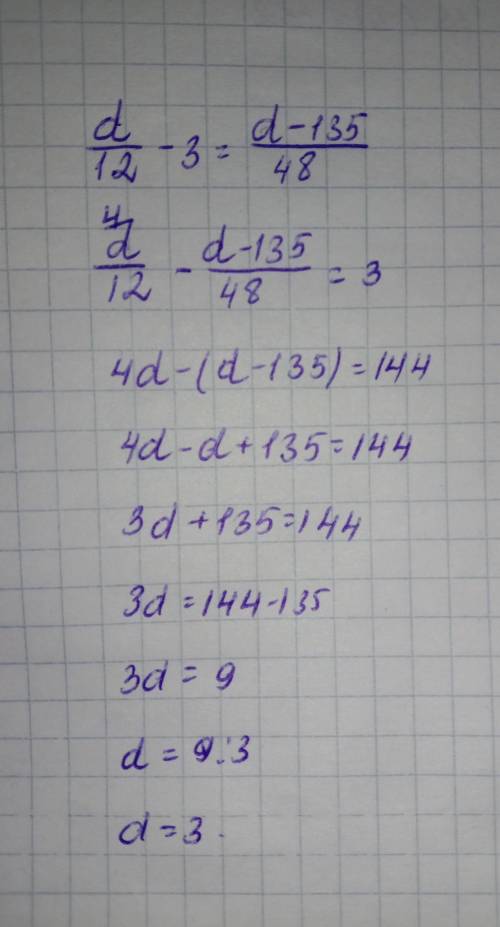 d/12 - 3 = d-135/48
4
d/12 - d-135/48 = 3
4d-(d-135)=144
4d-d+135=144
3d+135=144
3d=144-135
3d = 9
d = 9:3
d=3.